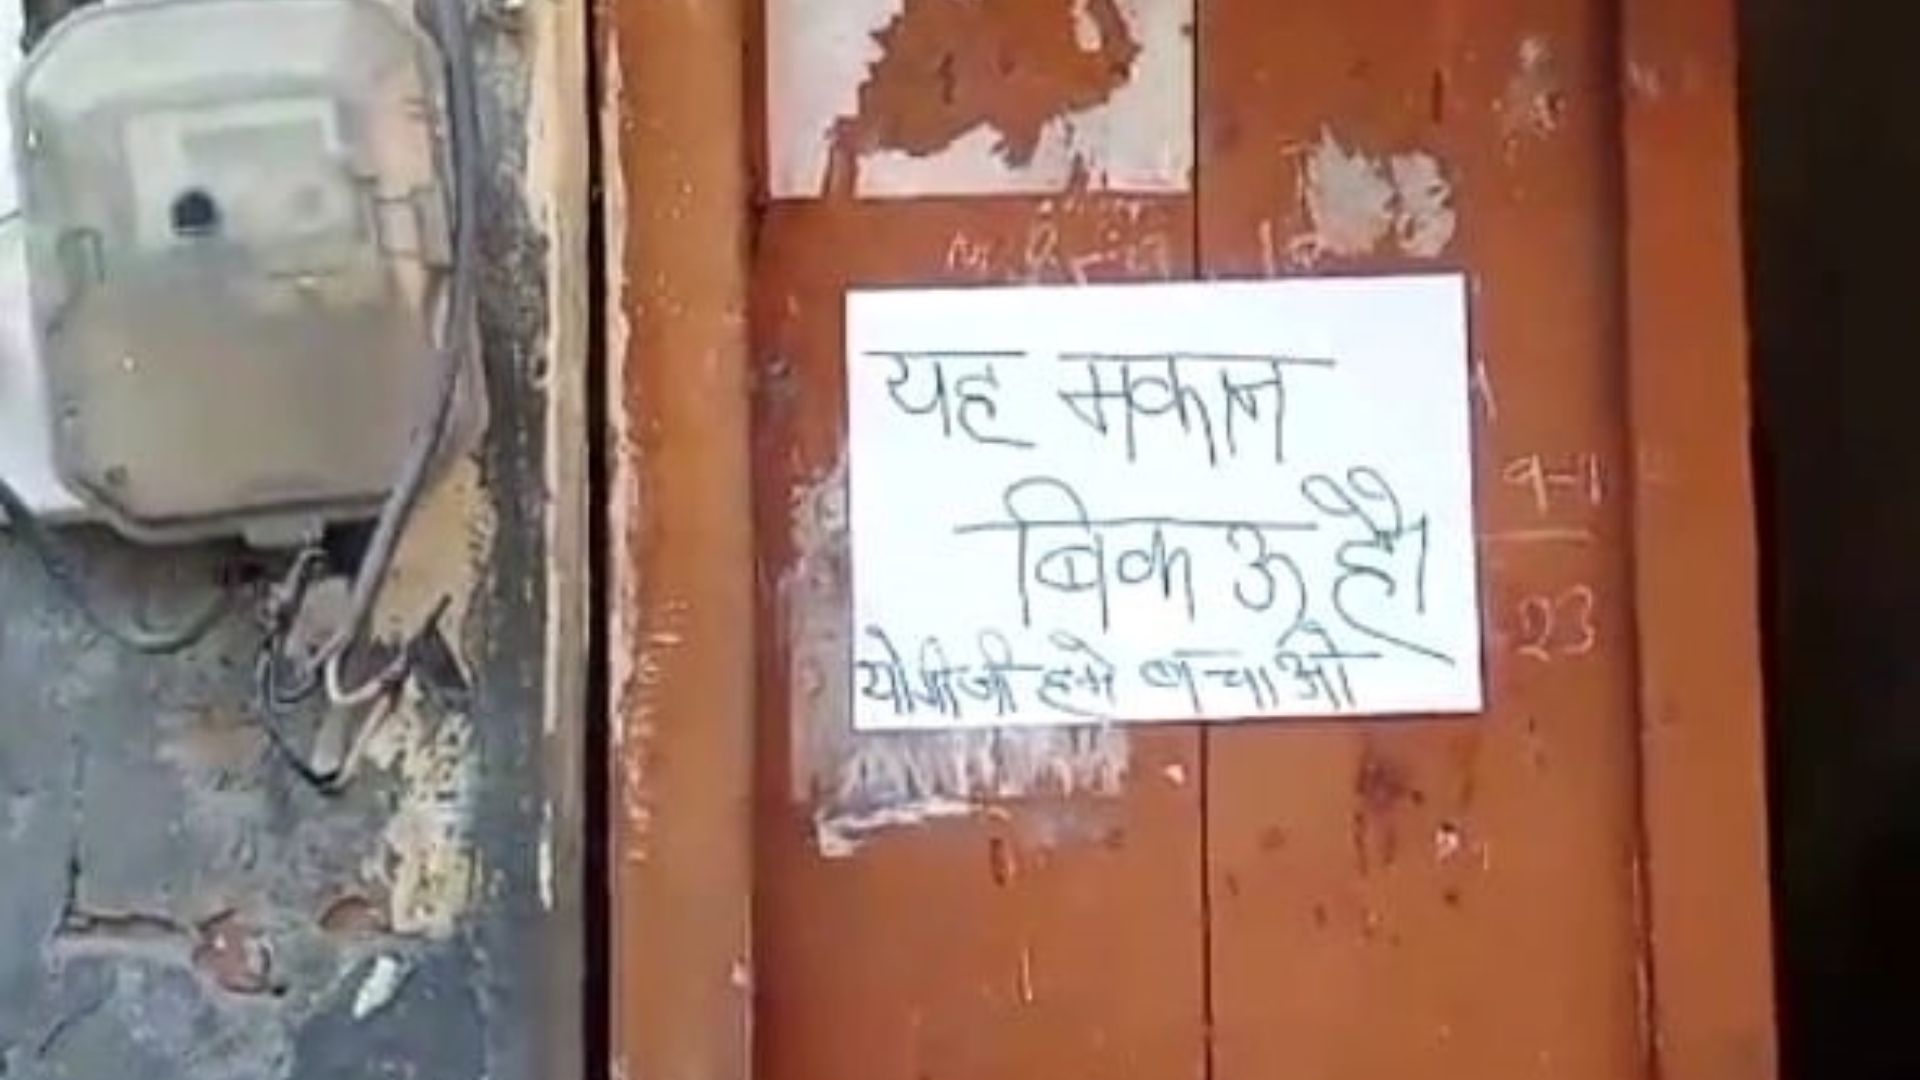 यह मकान
बिकाऊ है।
योगीजी हमे बचाओ
9-1
23